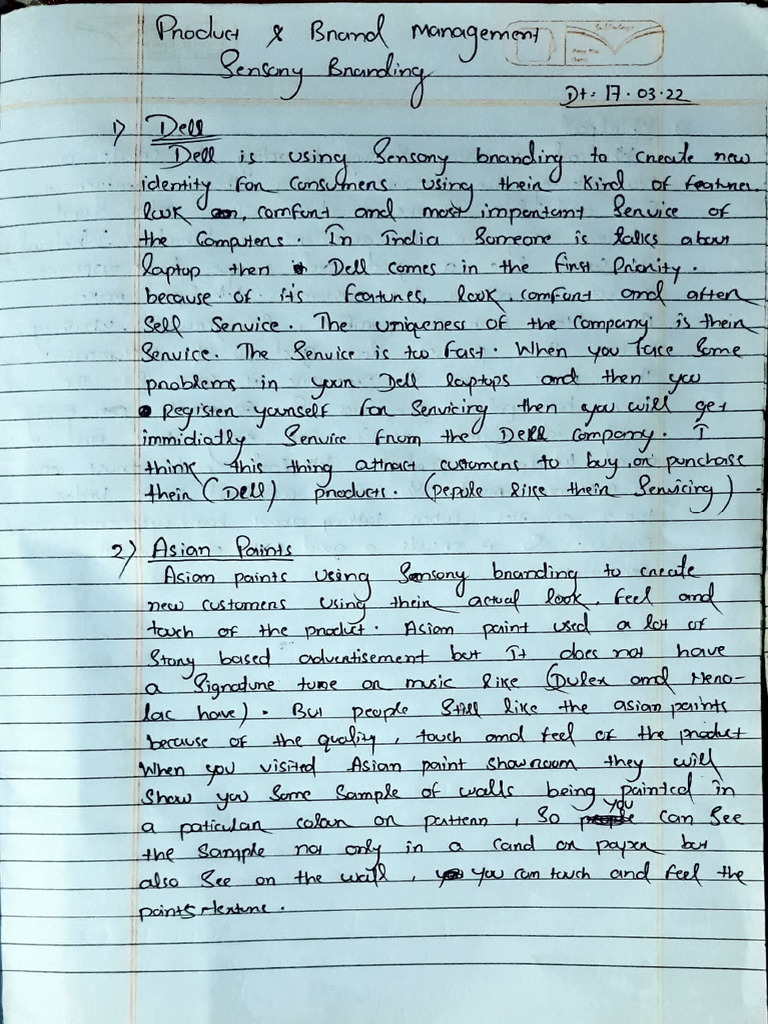 Product & Brand Management
Sensory Branding
Dt: 17.03.22
1) Dell
Dell is using Sensory branding to create new
identity for Consumers using their Kind of features
look, comfort and most important Service of
the Computers. In India Someone is talks about
laptop then Dell comes in the first Priority.
because of it's features, look, comfort and after
Sell Service. The uniqueness of the Company is their
Service. The Service is too fast. When you face Some
problems in your Dell laptops and then you
Register yourself for Servicing then you will get
immidiatly Service from the Dell company. I
think this thing attract customers to buy or purchase
their (Dell) products. (pepole like their Servicing)
2) Asian Paints
Asian paints using Sensory branding to create
new customers using their actual look, feel and
touch of the product. Asian paint used a lot of
Story based advertisement but It does not have
a Signature tune or music like (Dulex and Nero-
lac have). But people Still like the asian paints
because of the quality, touch and feel of the product
When you visited Asian paint Showroom they will
Show you Some Sample of walls being painted in
a paticular colour or pattern, So you can See
the Sample not only in a Card or paper but
also See on the wall, you can touch and feel the
paints texture.